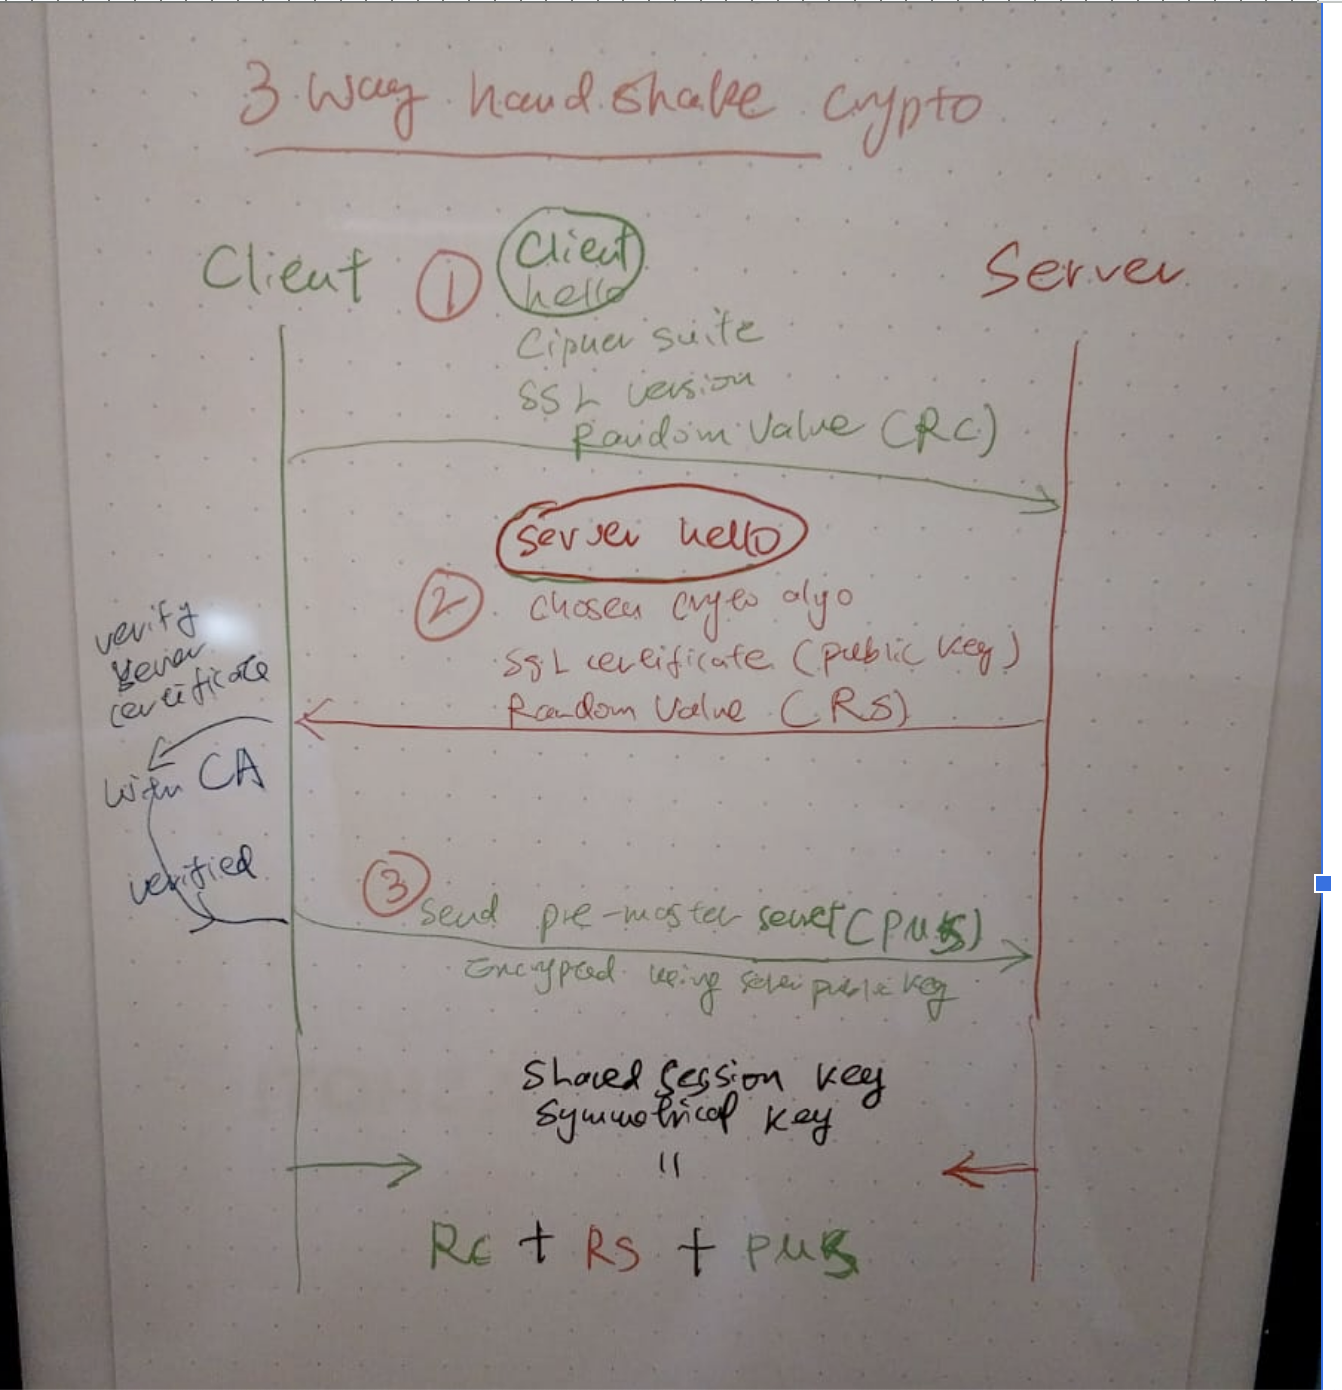 3 Way handshake crypto
Client
Server
1
Client
hello
Cipher suite
SSL version
Random Value (RC)
Server hello
2
chosen crypto algo
SSL certificate (public key)
Random Value (RS)
verify
server
certificate
with CA
verified
3
Send pre-master secret (PMS)
Encrypted using server public key
Shared Session key
Symmetrical key
=
RC + RS + PMS